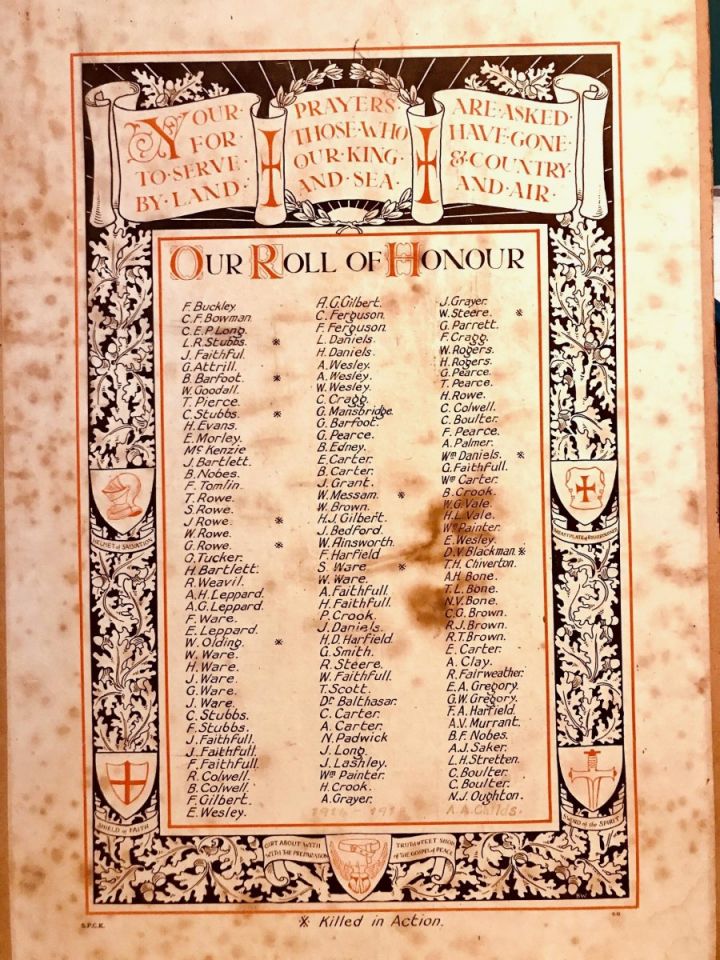 YOUR · PRAYERS · ARE · ASKED ·
FOR · THOSE · WHO HAVE · GONE ·
TO · SERVE · OUR · KING · & · COUNTRY ·
BY · LAND · AND · SEA · AND · AIR ·
OUR ROLL OF HONOUR
F. Buckley.
C.F. Bowman.
C.E.P. Long.
L.R. Stubbs. ※
J. Faithful.
G. Attrill.
B. Barfoot. ※
W. Goodall.
T. Pierce.
C. Stubbs. ※
H. Evans.
E. Morley.
Mc Kenzie
J. Bartlett.
B. Nobes.
F. Tomlin.
T. Rowe.
S. Rowe.
J. Rowe. ※
W. Rowe.
G. Rowe. ※
O. Tucker.
H. Bartlett.
R. Weavil.
A.H. Leppard.
A.G. Leppard.
F. Ware.
E. Leppard.
W. Olding. ※
W. Ware.
H. Ware.
J. Ware.
G. Ware.
J. Ware.
C. Stubbs.
F. Stubbs.
J. Faithfull.
J. Faithfull.
F. Faithfull.
R. Colwell.
B. Colwell.
F. Gilbert.
E. Wesley.
A.G. Gilbert.
C. Ferguson.
F. Ferguson.
L. Daniels.
H. Daniels.
A. Wesley.
A. Wesley.
W. Wesley.
C. Cragg.
G. Mansbridge.
G. Barfoot.
G. Pearce.
B. Edney.
E. Carter.
B. Carter.
J. Grant.
W. Messam. ※
W. Brown.
H.J. Gilbert.
J. Bedford.
W. Ainsworth.
F. Harfield
S. Ware ※
W. Ware.
A. Faithfull.
H. Faithfull.
P. Crook.
J. Daniels.
H.D. Harfield.
G. Smith.
R. Steere.
W. Faithfull.
T. Scott.
Dr Balthasar.
C. Carter.
A. Carter.
N. Padwick
J. Long.
J. Lashley.
Wm Painter.
H. Crook.
A. Grayer.
1914 1918
J. Grayer.
W. Steere. ※
G. Parrett.
F. Cragg.
W. Rogers.
H. Rogers.
G. Pearce.
T. Pearce.
H. Rowe.
C. Colwell.
C. Boulter.
F. Pearce.
A. Palmer.
Wm Daniels. ※
G. Faithfull.
Wm Carter.
B. Crook.
W.G. Vale.
H.L. Vale.
Wm Painter.
E. Wesley.
D.V. Blackman. ※
T.H. Chiverton.
A.H. Bone.
T.L. Bone.
N.V. Bone.
C.G. Brown.
R.J. Brown.
R.T. Brown.
E. Carter.
A. Clay.
R. Fairweather.
E.A. Gregory.
G.W. Gregory.
F.A. Harfield.
A.V. Murrant.
B.F. Nobes.
A.J. Saker.
L.H. Stretten.
C. Boulter.
C. Boulter.
N.J. Oughton.
A.A. Childs.
HELMET of SALVATION
BREASTPLATE of RIGHTEOUSNESS
SHIELD of FAITH
SWORD of the SPIRIT
GIRT ABOUT WITH TRUTH & FEET SHOD
WITH THE PREPARATION OF THE GOSPEL OF PEACE
B.W.
S.P.C.K.
※ Killed in Action.